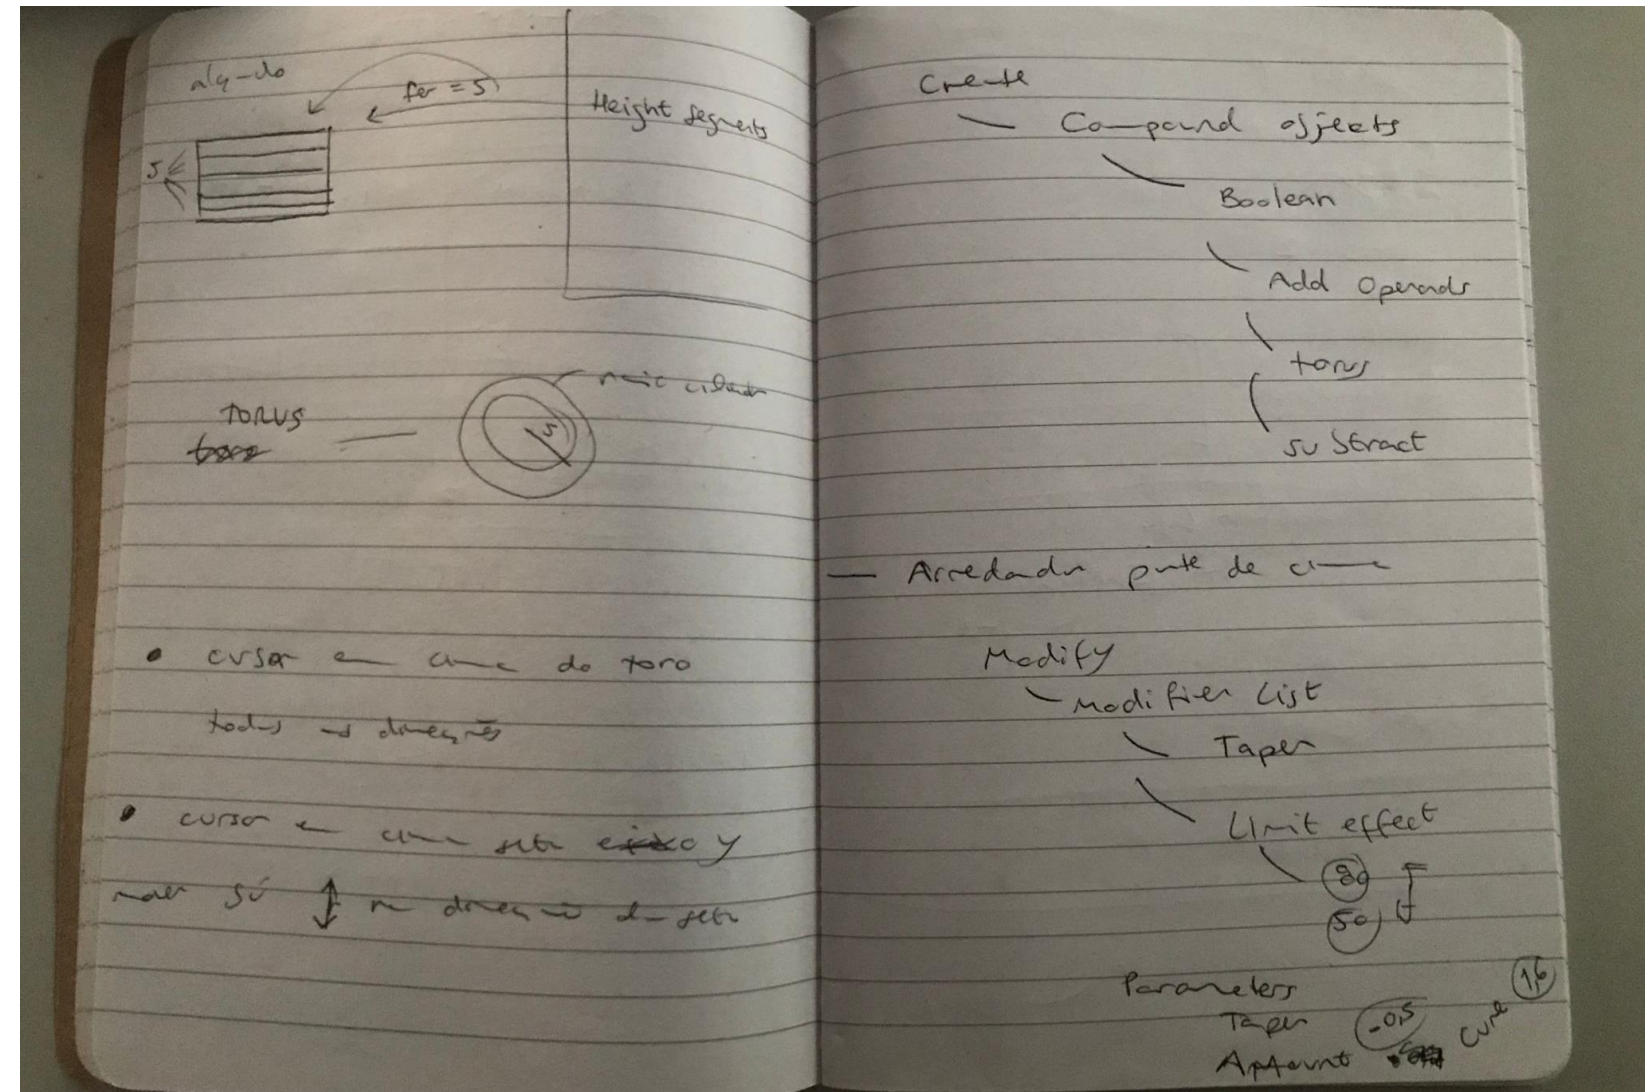 fer = 5
Height segments
5
TORUS
5
• cursor em cima do toro
todas as direções
• cursor em cima seta eixo y
mover só na direção da seta
Create
Compound objects
Boolean
Add Operands
torus
substract
— Arredondar parte de cima
Modify
Modifier List
Taper
Limit effect
80
50
Parameters
Taper -0,5
Amount Curve 1,6